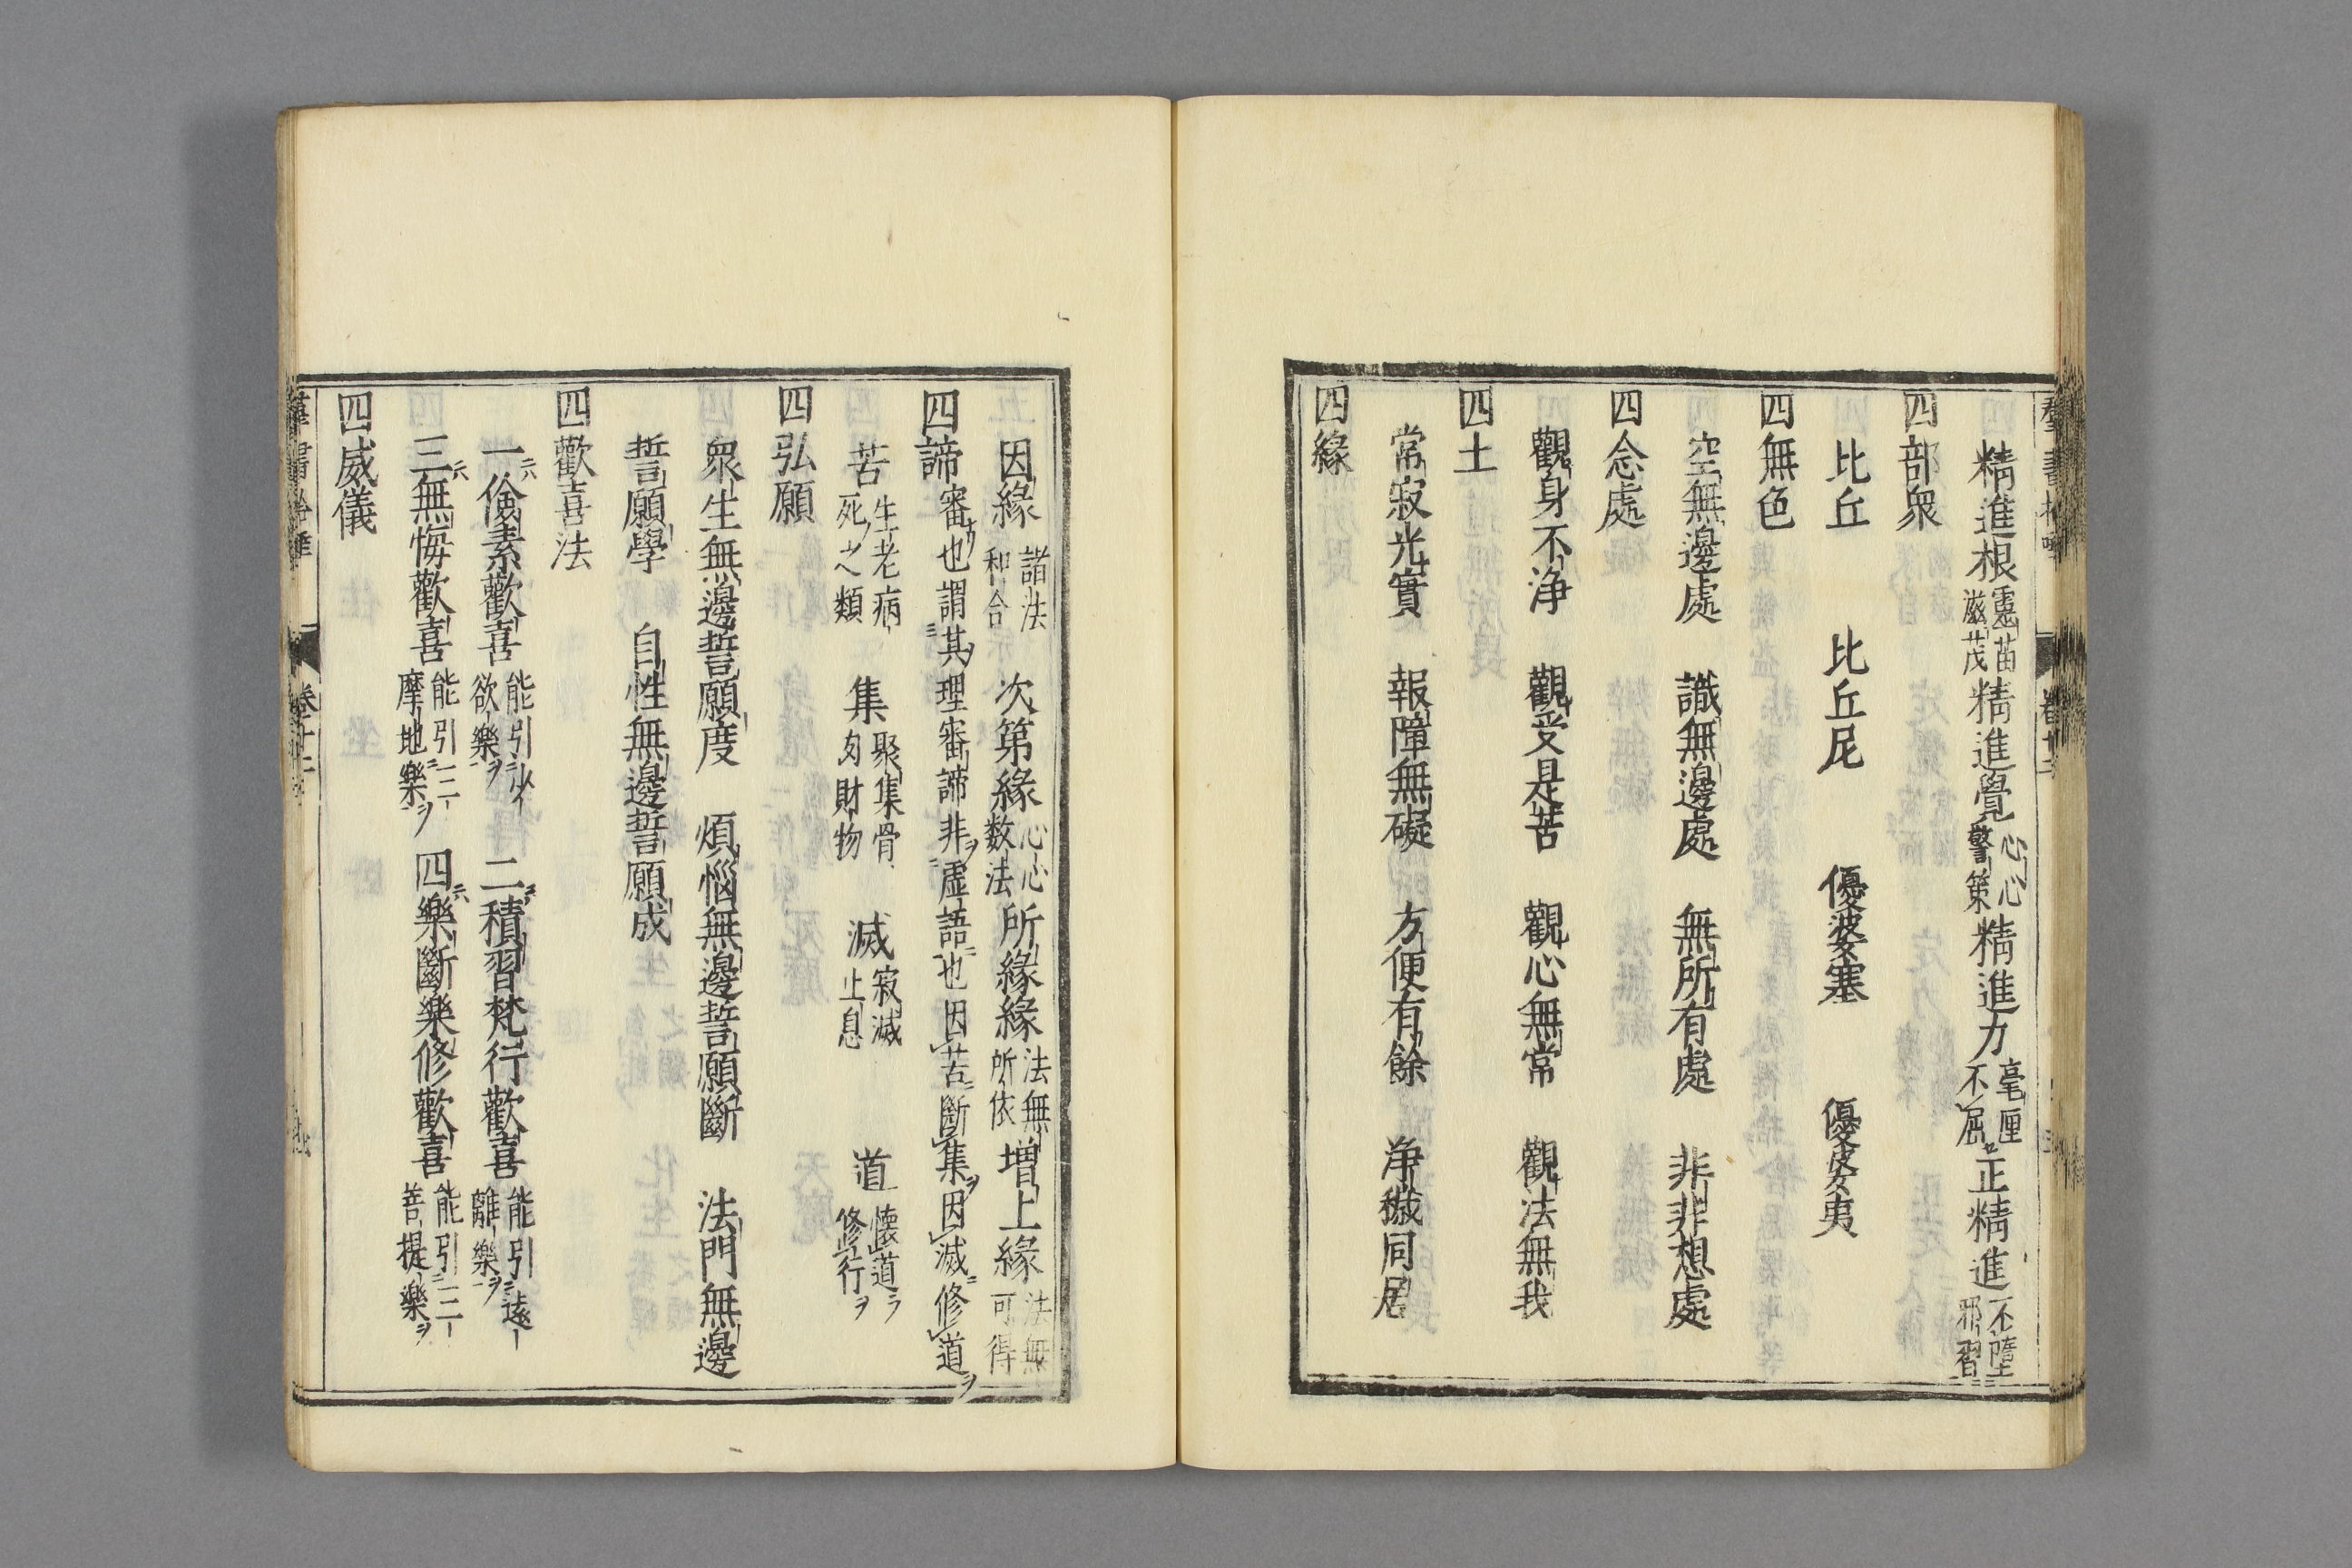 精進根靈苗滋茂精進覺心心警策精進力毫厘不屈正精進不墮邪習
四部衆
比丘　比丘尼　優婆塞　優婆夷
四無色
空無邊處　識無邊處　無所有處　非非想處
四念處
觀身不淨　觀受是苦　觀心無常　觀法無我
四土
常寂光實　報障無礙　方便有餘　淨穢同居
四緣
因緣諸法和合　次第緣心心数法所緣緣法無所依增上緣法無可得
四諦審也謂其理審諦非虛語也因苦斷集因滅修道ヲ
苦生老病死之類　集聚集骨肉財物　滅寂滅止息　道懐道ラ修行ヲ
四弘願
衆生無邊誓願度　煩惱無邊誓願斷　法門無邊
誓願學　自性無邊誓願成
四歡喜法
一儉素歡喜能引少欲樂ヲ　二積習梵行歡喜能引遠離樂ヲ
三無悔歡喜能引三摩地樂ヲ　四樂斷樂修歡喜能引三菩提樂ヲ
四威儀
羣書拾唾　卷十二